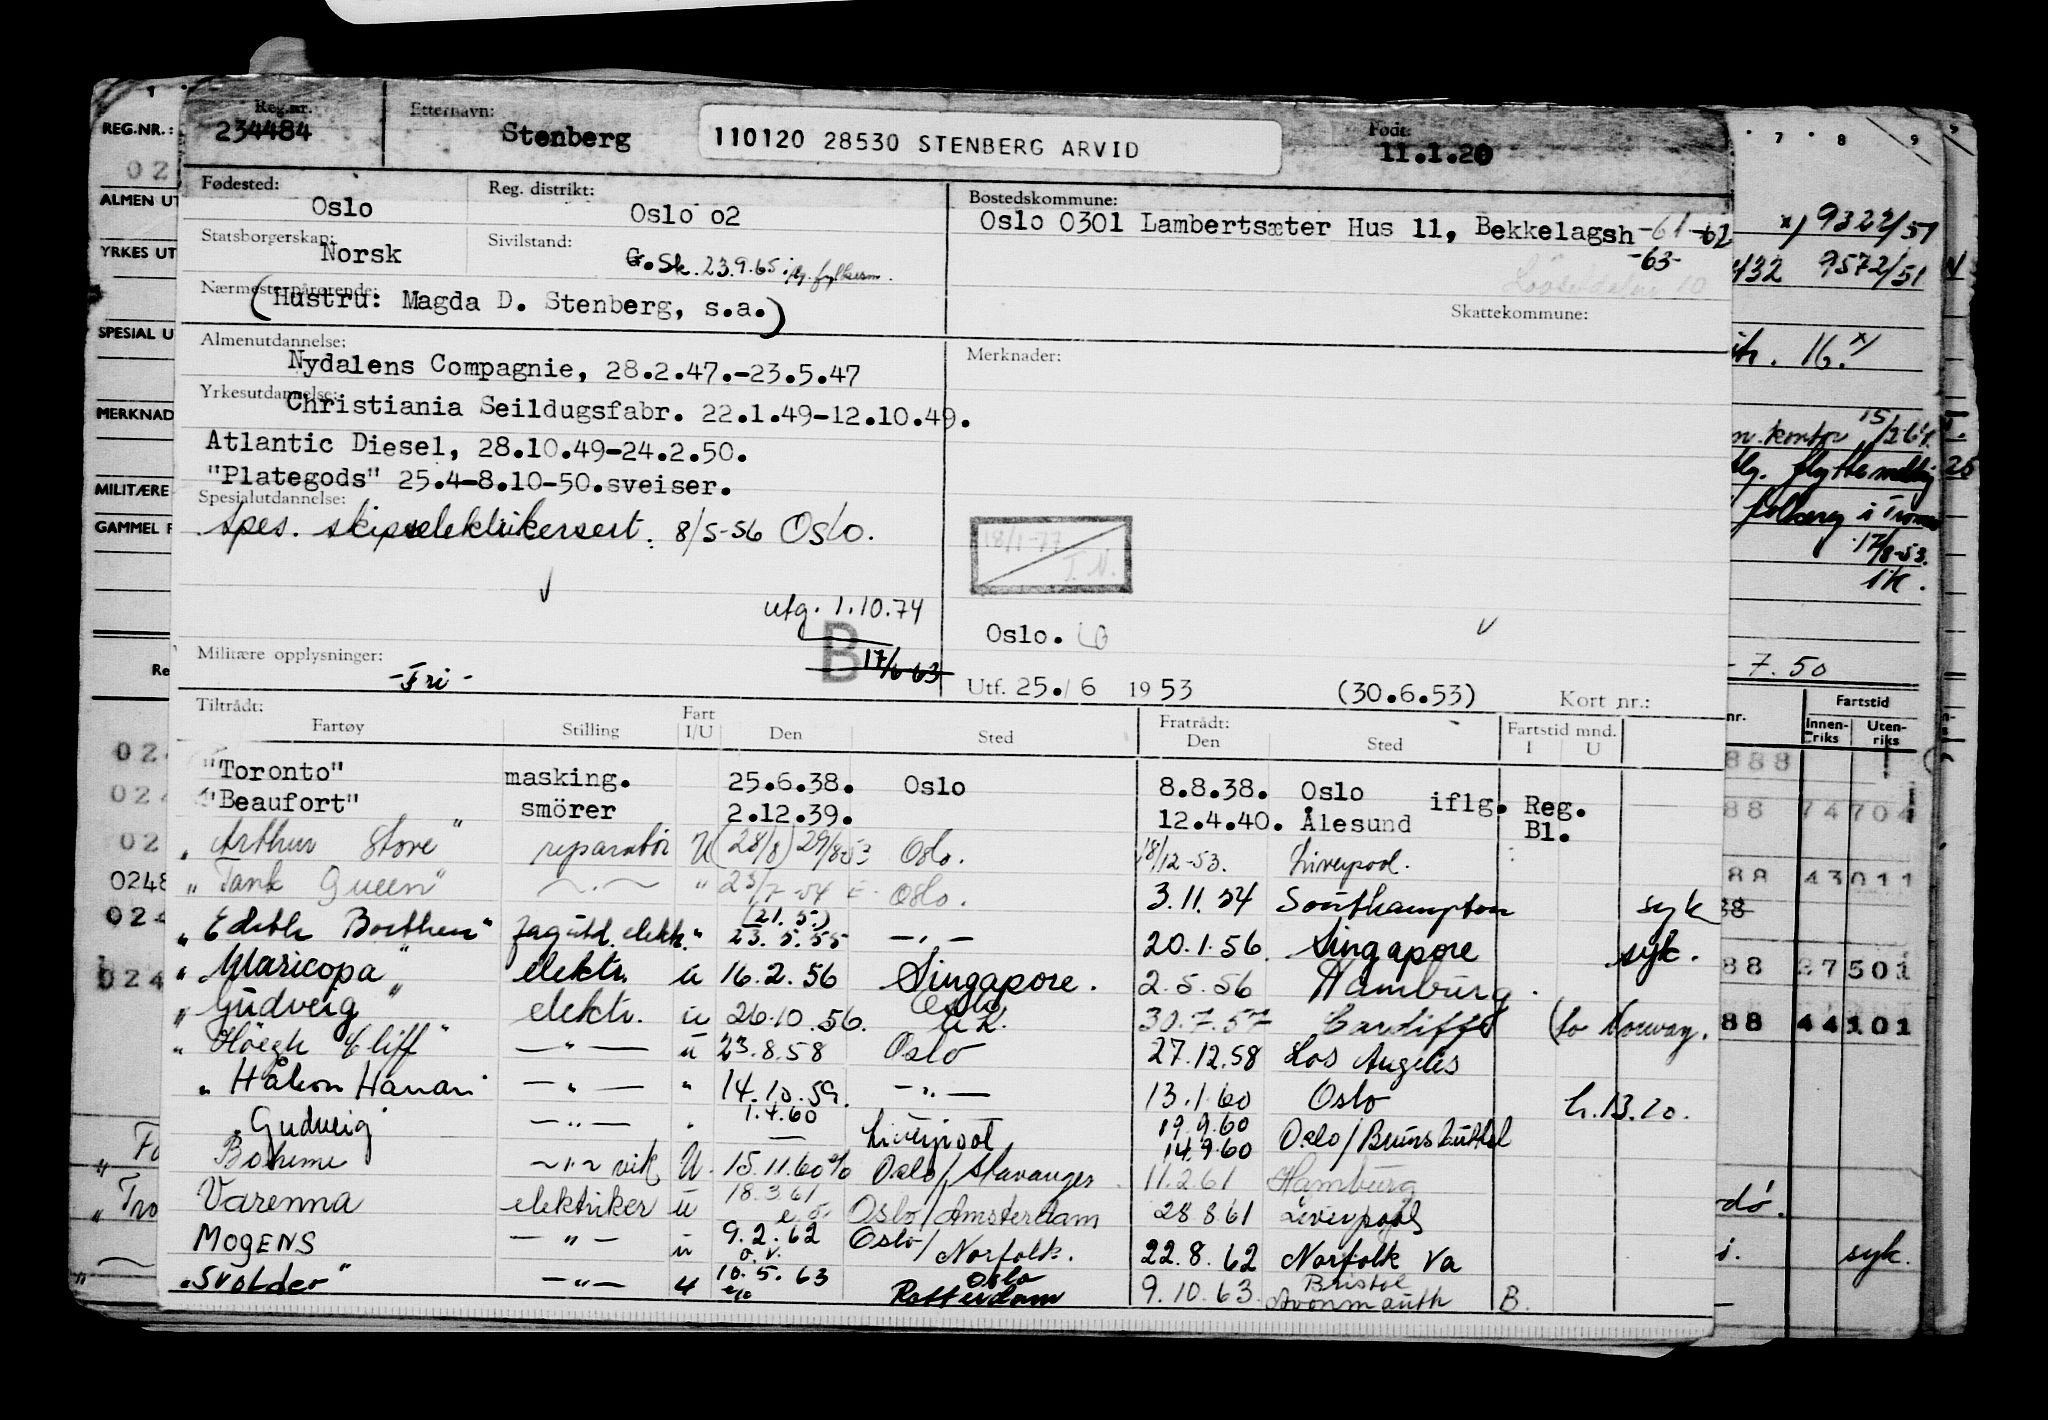 Reg.nr. Etternavn: Født:
234484 Stenberg 110120 28530 STENBERG ARVID 11.1.20
Fødested: Reg. distrikt: Bostedskommune:
Oslo Oslo o2 Oslo 0301 Lambertsæter Hus 11, Bekkelagsh -61 -62
-63-
Statsborgerskap: Sivilstand:
Norsk G. Sk. 23.9.65
Nærmeste pårørende: Skattekommune:
(Hustru: Magda D. Stenberg, s.a.)
Almenutdannelse: Merknader:
Nydalens Compagnie, 28.2.47.-23.5.47
Yrkesutdannelse:
Christiania Seildugsfabr. 22.1.49-12.10.49.
Atlantic Diesel, 28.10.49-24.2.50.
"Plategods" 25.4-8.10-50.sveiser.
Spesialutdannelse:
spes. skipselektrikersert. 8/5-56 Oslo.
18/1-77
T. N.
utg. 1.10.74
B 17/6 63
Oslo.
Militære opplysninger:
-Fri-
Utf. 25./6 1953 (30.6.53) Kort nr.:
Tiltrådt: Fratrådt:
Fartøy Stilling Fart I/U Den Sted Den Sted Fartstid mnd. I U
"Toronto" masking. 25.6.38. Oslo 8.8.38. Oslo
"Beaufort" smörer 2.12.39. 12.4.40. Ålesund iflg. Reg. Bl.
"Arthur Stove" reparatör U (28/8) 29/8-53 Oslo. 18/12-53. Liverpool.
"Tank Queen" " 23/7-54 Oslo. 3.11.54 Southampton syk
(21.5)
"Edith Borthen" fagutd. elektr. " 23.5.55 -"- 20.1.56 Singapore syk.
"Maricopa" elektr. u 16.2.56 Singapore. 2.5.56 Hamburg.
"Gudveig" elektr. u 26.10.56. Oslo 30.7.57 Cardiff (to Norway.
"Höegh Cliff" -"- u 23.8.58 Oslo 27.12.58 Los Angeles
"Håkon Hauan -"- " 14.10.59. -"- 13.1.60 Oslo
"Gudveig -"- " 1.4.60 Liverpool 19.9.60 14.9.60 Oslo/Brunsbüttel
Boheme -"- vik U. 15.11.60 Oslo/Stavanger 11.2.61 Hamburg
Varenna elektriker u 18.3.61 Oslo/Amsterdam 28 8 61 Liverpool
MOGENS -"- u 9.2.62 Oslo/Norfolk. 22.8.62 Norfolk Va
"Svolder" -"- u 10.5.63 Oslo Rotterdam 9.10.63. Bristol Avonmouth B.
REG.NR.:
02
ALMEN UT
YRKES UT
SPESIAL U
MERKNAD
MILITÆRE
GAMMEL F
Re
024
024
02
0248
024
024
Fo
" Tro
7 8 9
x) 9322/51
432 9572/51
16. x)
kontor 15/2 61.
flyttemelding
folkereg i Tromsø
17/8-53.
- 7.50
nr. Fartstid
Innen-riks Uten-riks
888
88 74704
88 43011
88
88 27501
88 44101
syk.